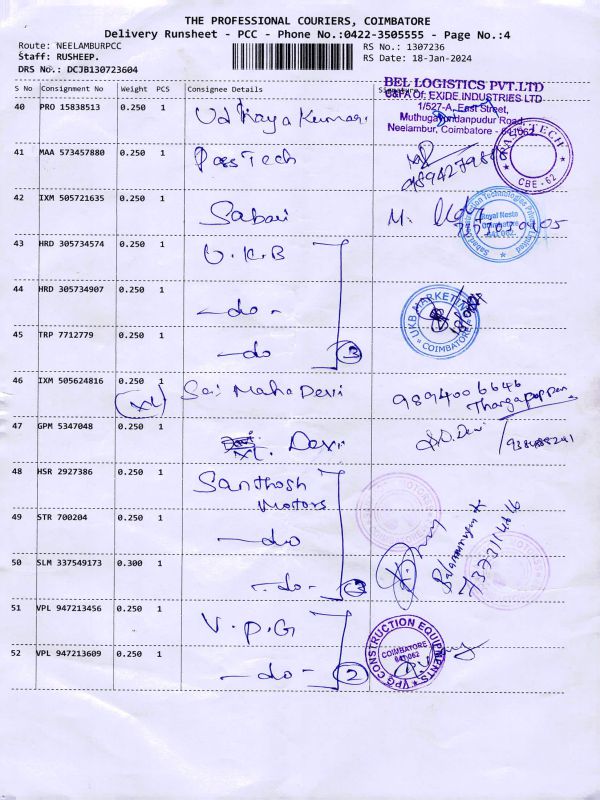 THE PROFESSIONAL COURIERS, COIMBATORE
Delivery Runsheet - PCC - Phone No.:0422-3505555 - Page No.:4
Route: NEELAMBURPCC RS No.: 1307236
Staff: RUSHEEP. RS Date: 18-Jan-2024
DRS No.: DCJB130723604
S No Consignment No Weight PCS Consignee Details Signature
BEL LOGISTICS PVT.LTD
C&FA Of: EXIDE INDUSTRIES LTD
1/527-A, East Street,
Muthugavundanpudur Road,
Neelambur, Coimbatore - 641062.
40 PRO 15838513 0.250 1 Udhaya Kumar
41 MAA 573457880 0.250 1 Pass Tech
TECH
CBE - 62
42 IXM 505721635 0.250 1 Sabari M.
Royal Nesto
Coimbatore
43 HRD 305734574 0.250 1 U.K.B
44 HRD 305734907 0.250 1 -do-
UKB MARKETING
COIMBATORE
45 TRP 7712779 0.250 1 -do 3
46 IXM 505624816 0.250 1 Sai Maha Devi 9894006646
(XL) Thangapappan
47 GPM 5347048 0.250 1 XL. Devi S.D.Devi
48 HSR 2927386 0.250 1 Santhosh
Motors
49 STR 700204 0.250 1 -do
50 SLM 337549173 0.300 1 -do- 3
51 VPL 947213456 0.250 1 V.P.G
52 VPL 947213609 0.250 1 -do- 2
VPG CONSTRUCTION EQUIPMENTS
COIMBATORE
641 062